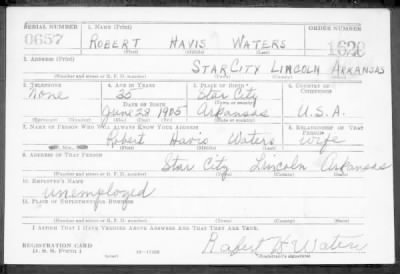 SERIAL NUMBER 1. NAME (Print) ORDER NUMBER
0657 ROBERT HAVIS WATERS 1620
(First) (Middle) (Last)
2. ADDRESS (Print)
STAR CITY LINCOLN ARKANSAS
(Number and street or R. F. D. number) (Town) (County) (State)
3. TELEPHONE 4. AGE IN YEARS 5. PLACE OF BIRTH 6. COUNTRY OF CITIZENSHIP
None 35 Star City
DATE OF BIRTH (Town or county)
June 28 1905 Arkansas U.S.A.
(Mo.) (Day) (Yr.) (State or country)
7. NAME OF PERSON WHO WILL ALWAYS KNOW YOUR ADDRESS 8. RELATIONSHIP OF THAT PERSON
Robert Havis Waters wife
(First) (Middle) (Last)
9. ADDRESS OF THAT PERSON
Star City Lincoln Arkansas
(Number and street or R. F. D. number) (Town) (County) (State)
10. EMPLOYER'S NAME
unemployed
11. PLACE OF EMPLOYMENT OR BUSINESS
(Number and street or R. F. D. number) (Town) (County) (State)
I AFFIRM THAT I HAVE VERIFIED ABOVE ANSWERS AND THAT THEY ARE TRUE.
REGISTRATION CARD
D. S. S. Form 1
(Registrant's signature)